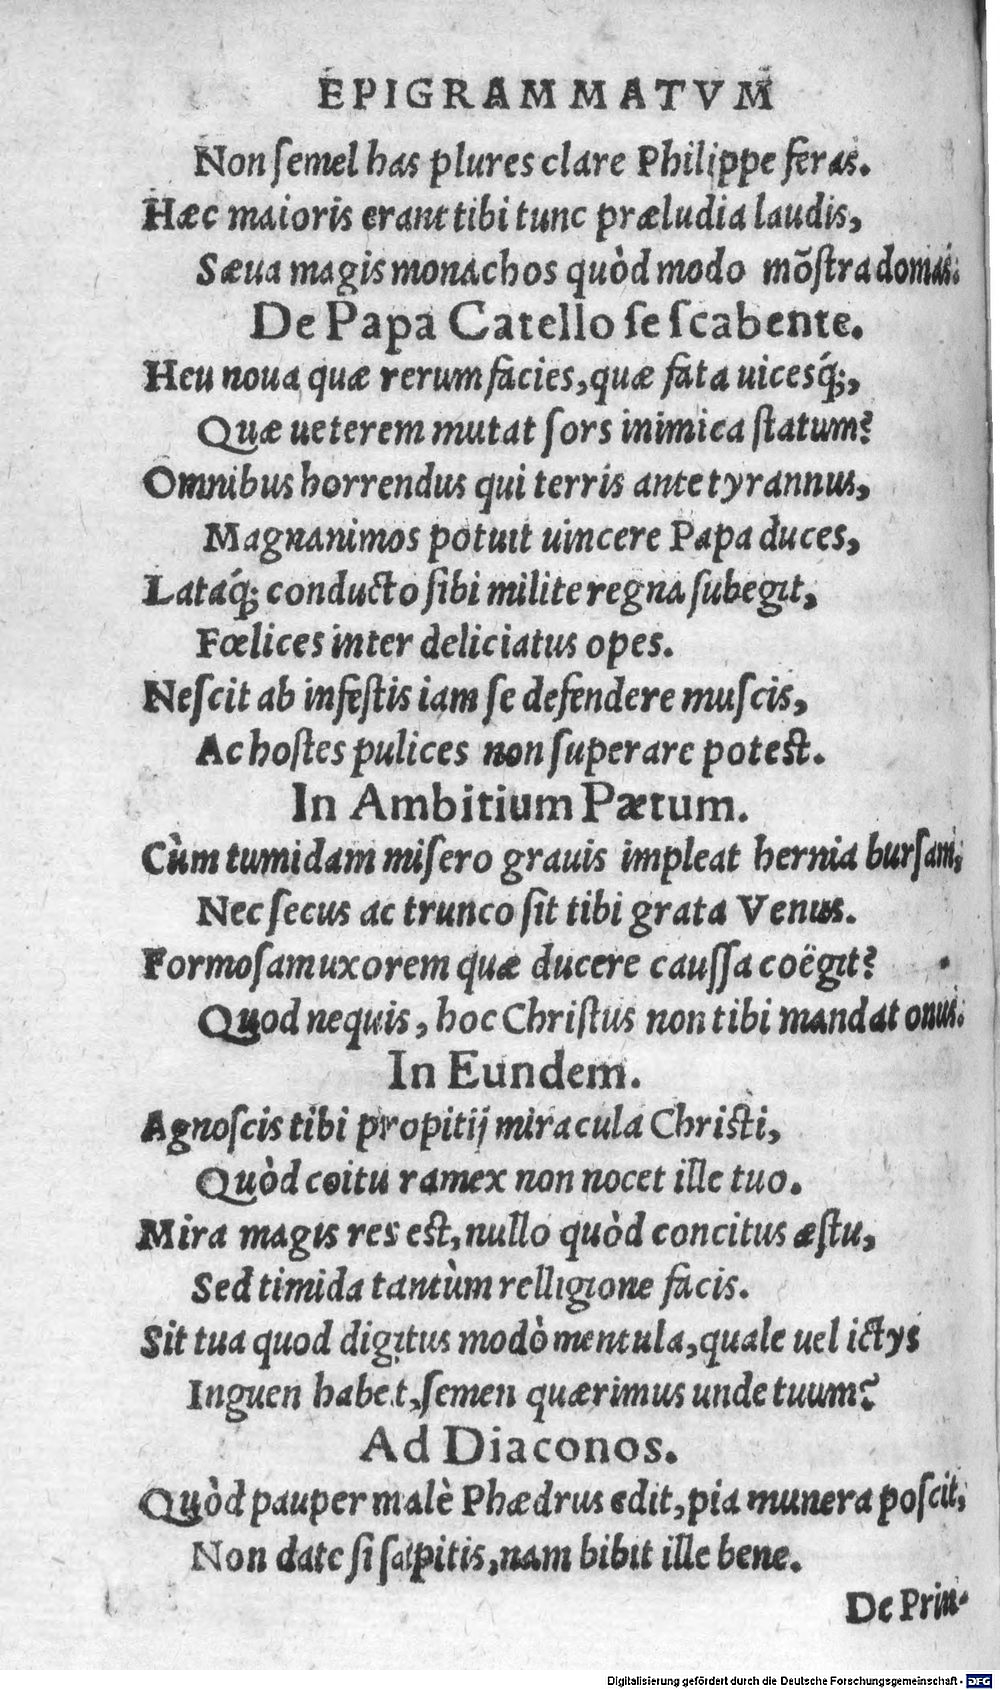 EPIGRAMMATVM
Non ſemel has plures clare Philippe feras.
Hæc maioris erant tibi tunc præludia laudis,
Sæua magis monachos quòd modo mõſtra domas.
De Papa Catello ſe ſcabente.
Heu noua quæ rerum facies, quæ fata uicesq́;,
Quæ ueterem mutat ſors inimica ſtatum?
Omnibus horrendus qui terris ante tyrannus,
Magnanimos potuit uincere Papa duces,
Lataq́; conducto ſibi milite regna ſubegit,
Fœlices inter deliciatus opes.
Neſcit ab infeſtis iam ſe defendere muſcis,
Ac hoſtes pulices non ſuperare poteſt.
In Ambitium Pætum.
Cùm tumidam miſero grauis impleat hernia burſam,
Nec ſecus ac trunco ſit tibi grata Venus.
Formoſam uxorem quæ ducere cauſſa coëgit?
Quod nequis, hoc Chriſtus non tibi mandat onus.
In Eundem.
Agnoſcis tibi propitij miracula Chriſti,
Quòd coitu ramex non nocet ille tuo.
Mira magis res eſt, nullo quòd concitus æſtu,
Sed timida tantùm relligione facis.
Sit tua quod digitus modò mentula, quale uel ictys
Inguen habet, ſemen quærimus unde tuum?
Ad Diaconos.
Quòd pauper malè Phædrus edit, pia munera poſcit,
Non date ſi ſapitis, nam bibit ille bene.
De Prin-
Digitalisierung gefördert durch die Deutsche Forschungsgemeinschaft - DFG